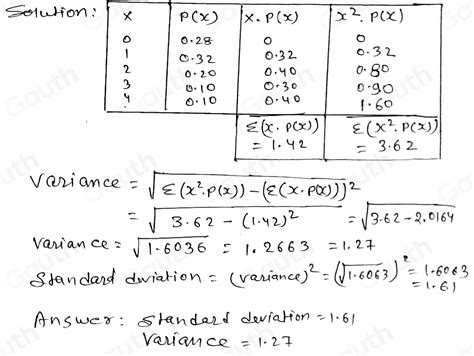 Solution:
x P(x) x.P(x) x². P(x)
0 0.28 0 0
1 0.32 0.32 0.32
2 0.20 0.40 0.80
3 0.10 0.30 0.90
4 0.10 0.40 1.60
Σ(x.P(x)) = 1.42 Σ(x².P(x)) = 3.62
Variance = √Σ(x².P(x)) - (Σ(x.P(x)))²
= √3.62 - (1.42)² = √3.62 - 2.0164
Variance = √1.6036 = 1.2663 = 1.27
Standard deviation = (variance)² = (√1.6063)² = 1.6063
= 1.61
Answer: Standard deviation = 1.61
Variance = 1.27
Gauth